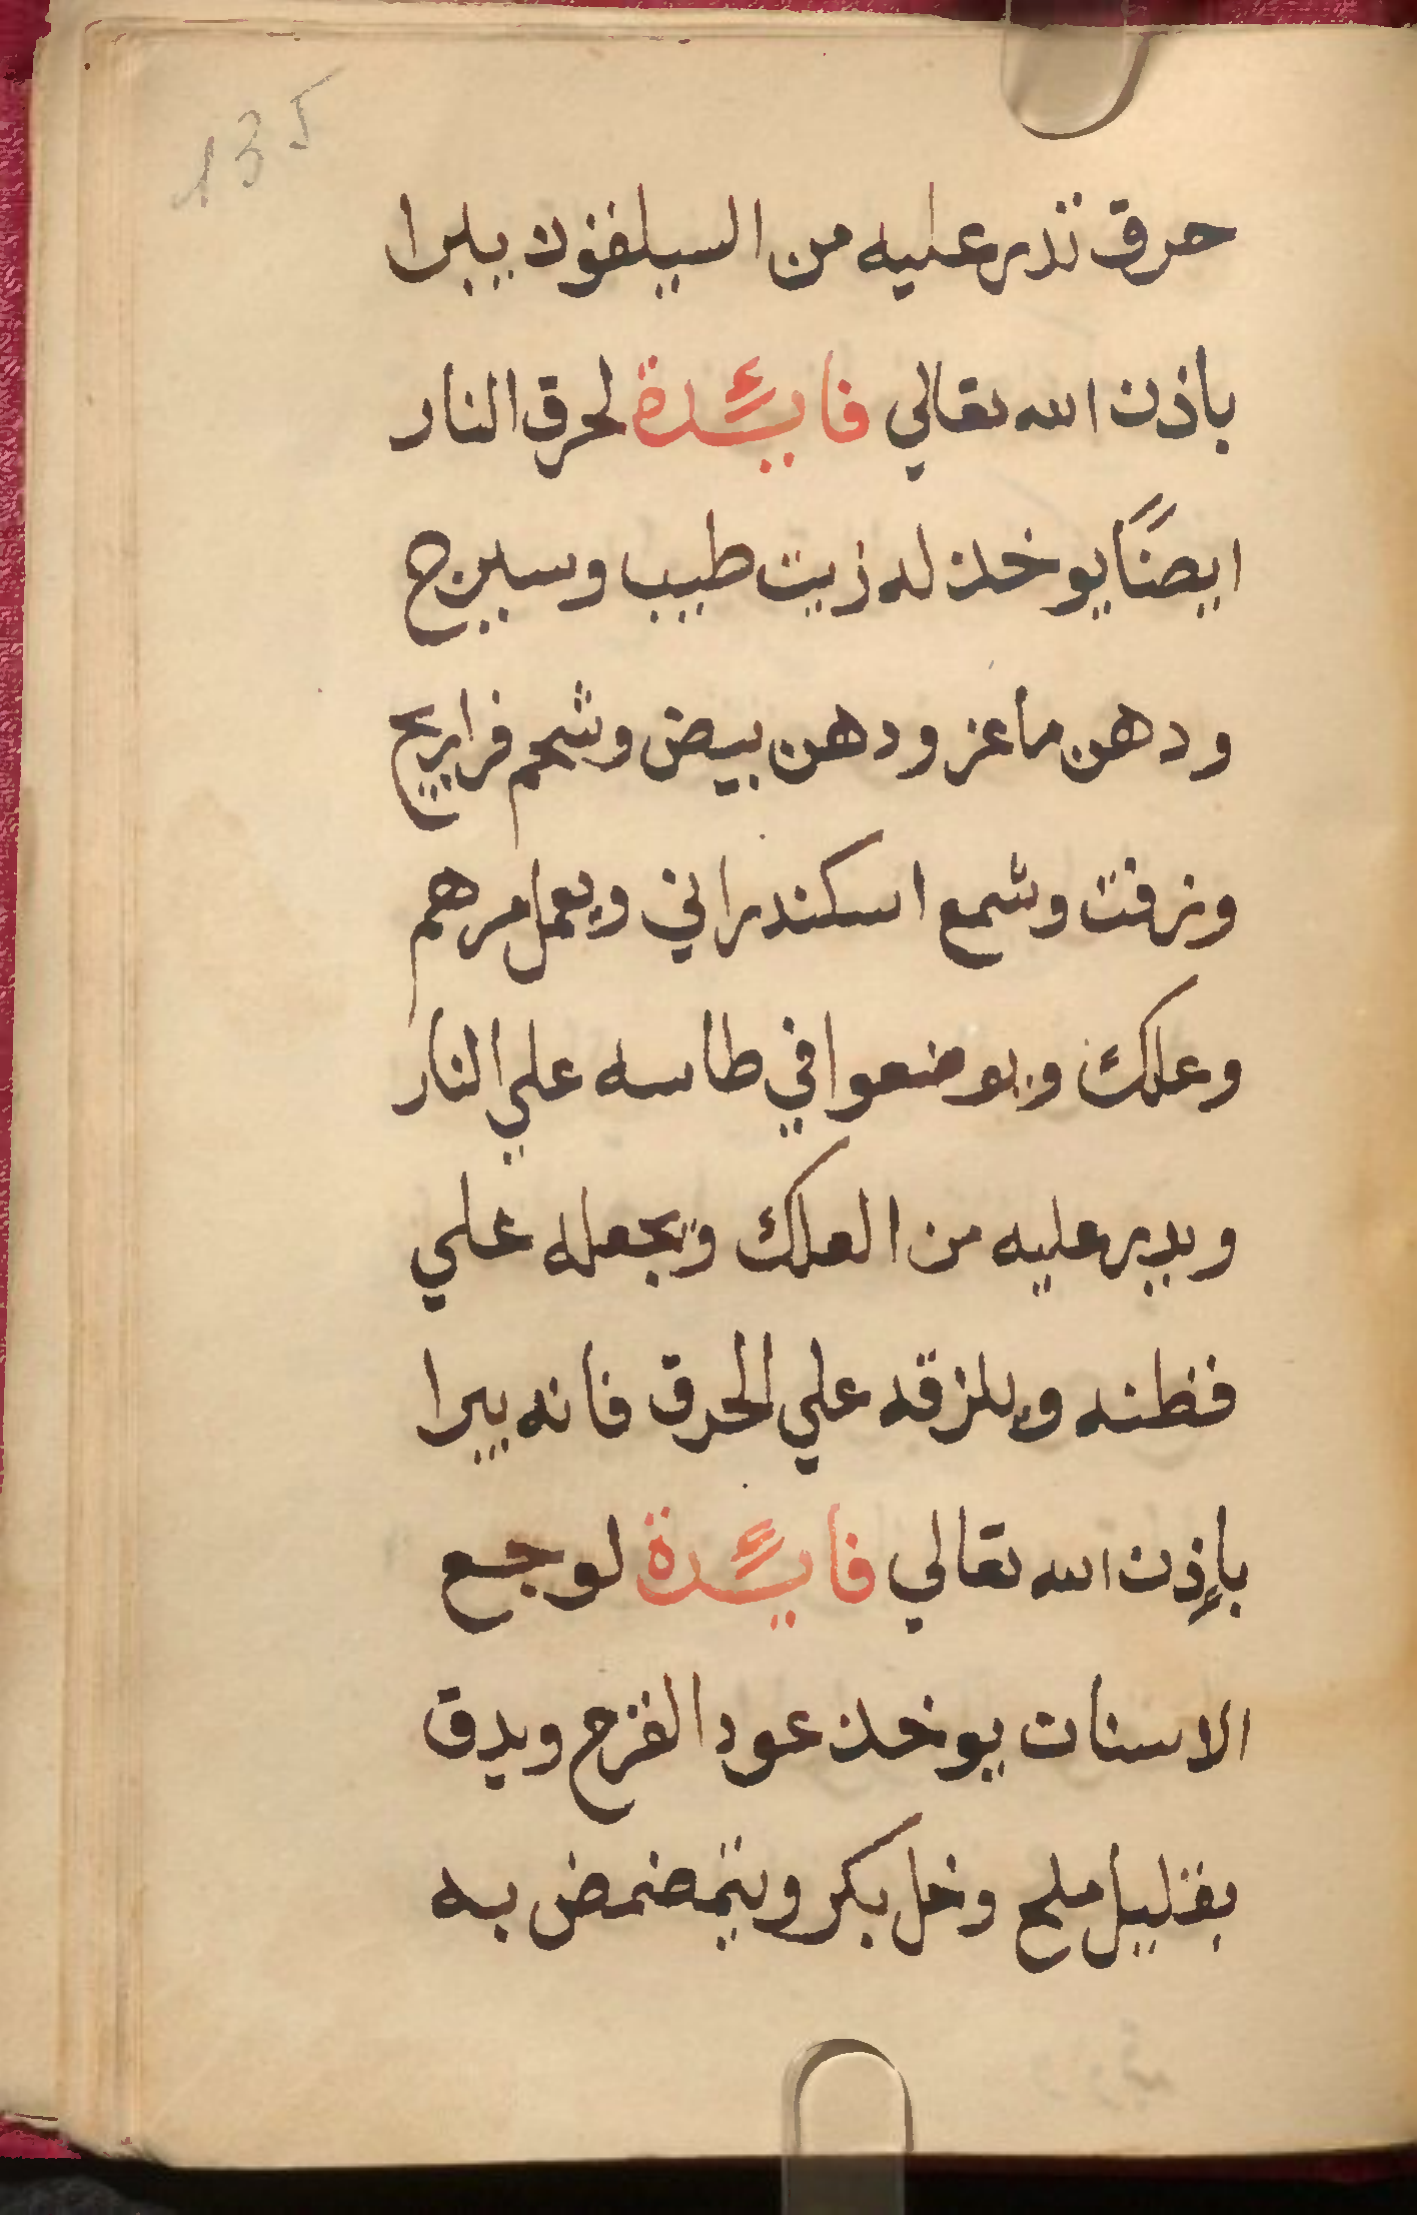 135
حرق تذر عليه من السيلقون يبرا
باذن الله تعالي فايئدة لحرق النار
ايضًا يوخذ له زيت طيب وسيرج
ودهن ماعز ودهن بيض وشحم فراريج
وزفت وشمع اسكندراني ويعمل مرهم
وعلك ويوضعوا في طاسه علي النار
ويدر عليه من العلك ويجعله علي
قطنه ويلزقه علي الحرق فانه يبرا
بإذن الله تعالي فايئدة لوجع
الاسنان يوخذ عود القرح ويدق
بقليل ملح وخل بكر ويتمضمض به